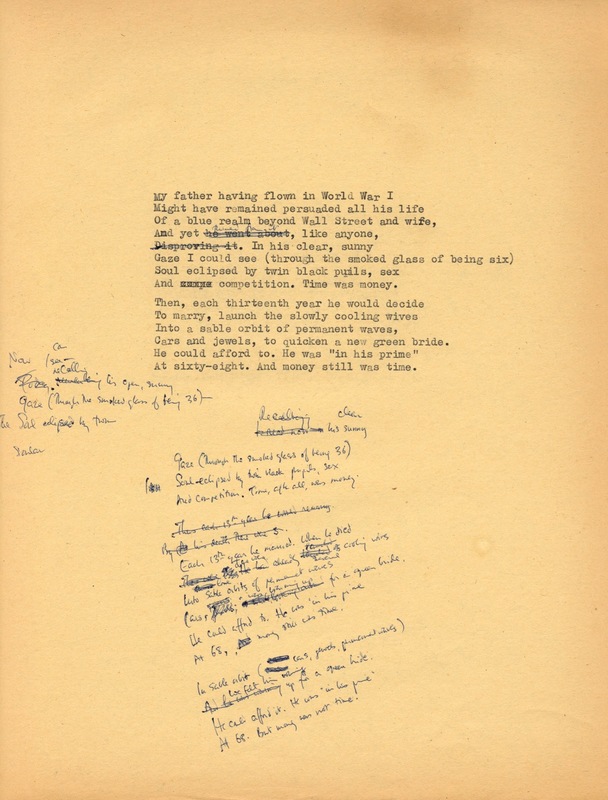 My father having flown in World War I
Might have remained persuaded all his life
Of a blue realm beyond Wall Street and wife,
And yet he went about, like anyone,
Disproving it. In his clear, sunny
Gaze I could see (through the smoked glass of being six)
Soul eclipsed by twin black pupils, sex
And competition. Time was money.
Then, each thirteenth year he would decide
To marry, launch the slowly cooling wives
Into a sable orbit of permanent waves,
Cars and jewels, to quicken a new green bride.
He could afford to. He was "in his prime"
At sixty-eight. And money still was time.
can
Now I see
recalling
his open, sunny
Gaze (through the smoked glass of being 36)
The Soul eclipsed by twin
Recalling clear
his sunny
Gaze (through the smoked glass of being 36)
Soul eclipsed by twin black pupils, sex
And competition. Time, after all, was money.
This each 13th year he would
By his death there were 3.
Each 13th year he married. When he died
There were already several cooling wives
Into sable orbits of permanent waves
Cars, for a green bride.
He could afford to. He was "in his prime
At 68, money still was time.
In sable orbit (cars, jewels, permanent waves)
We felt him up for a green bride.
He could afford it. He was "in his prime"
At 68. But money was not time.